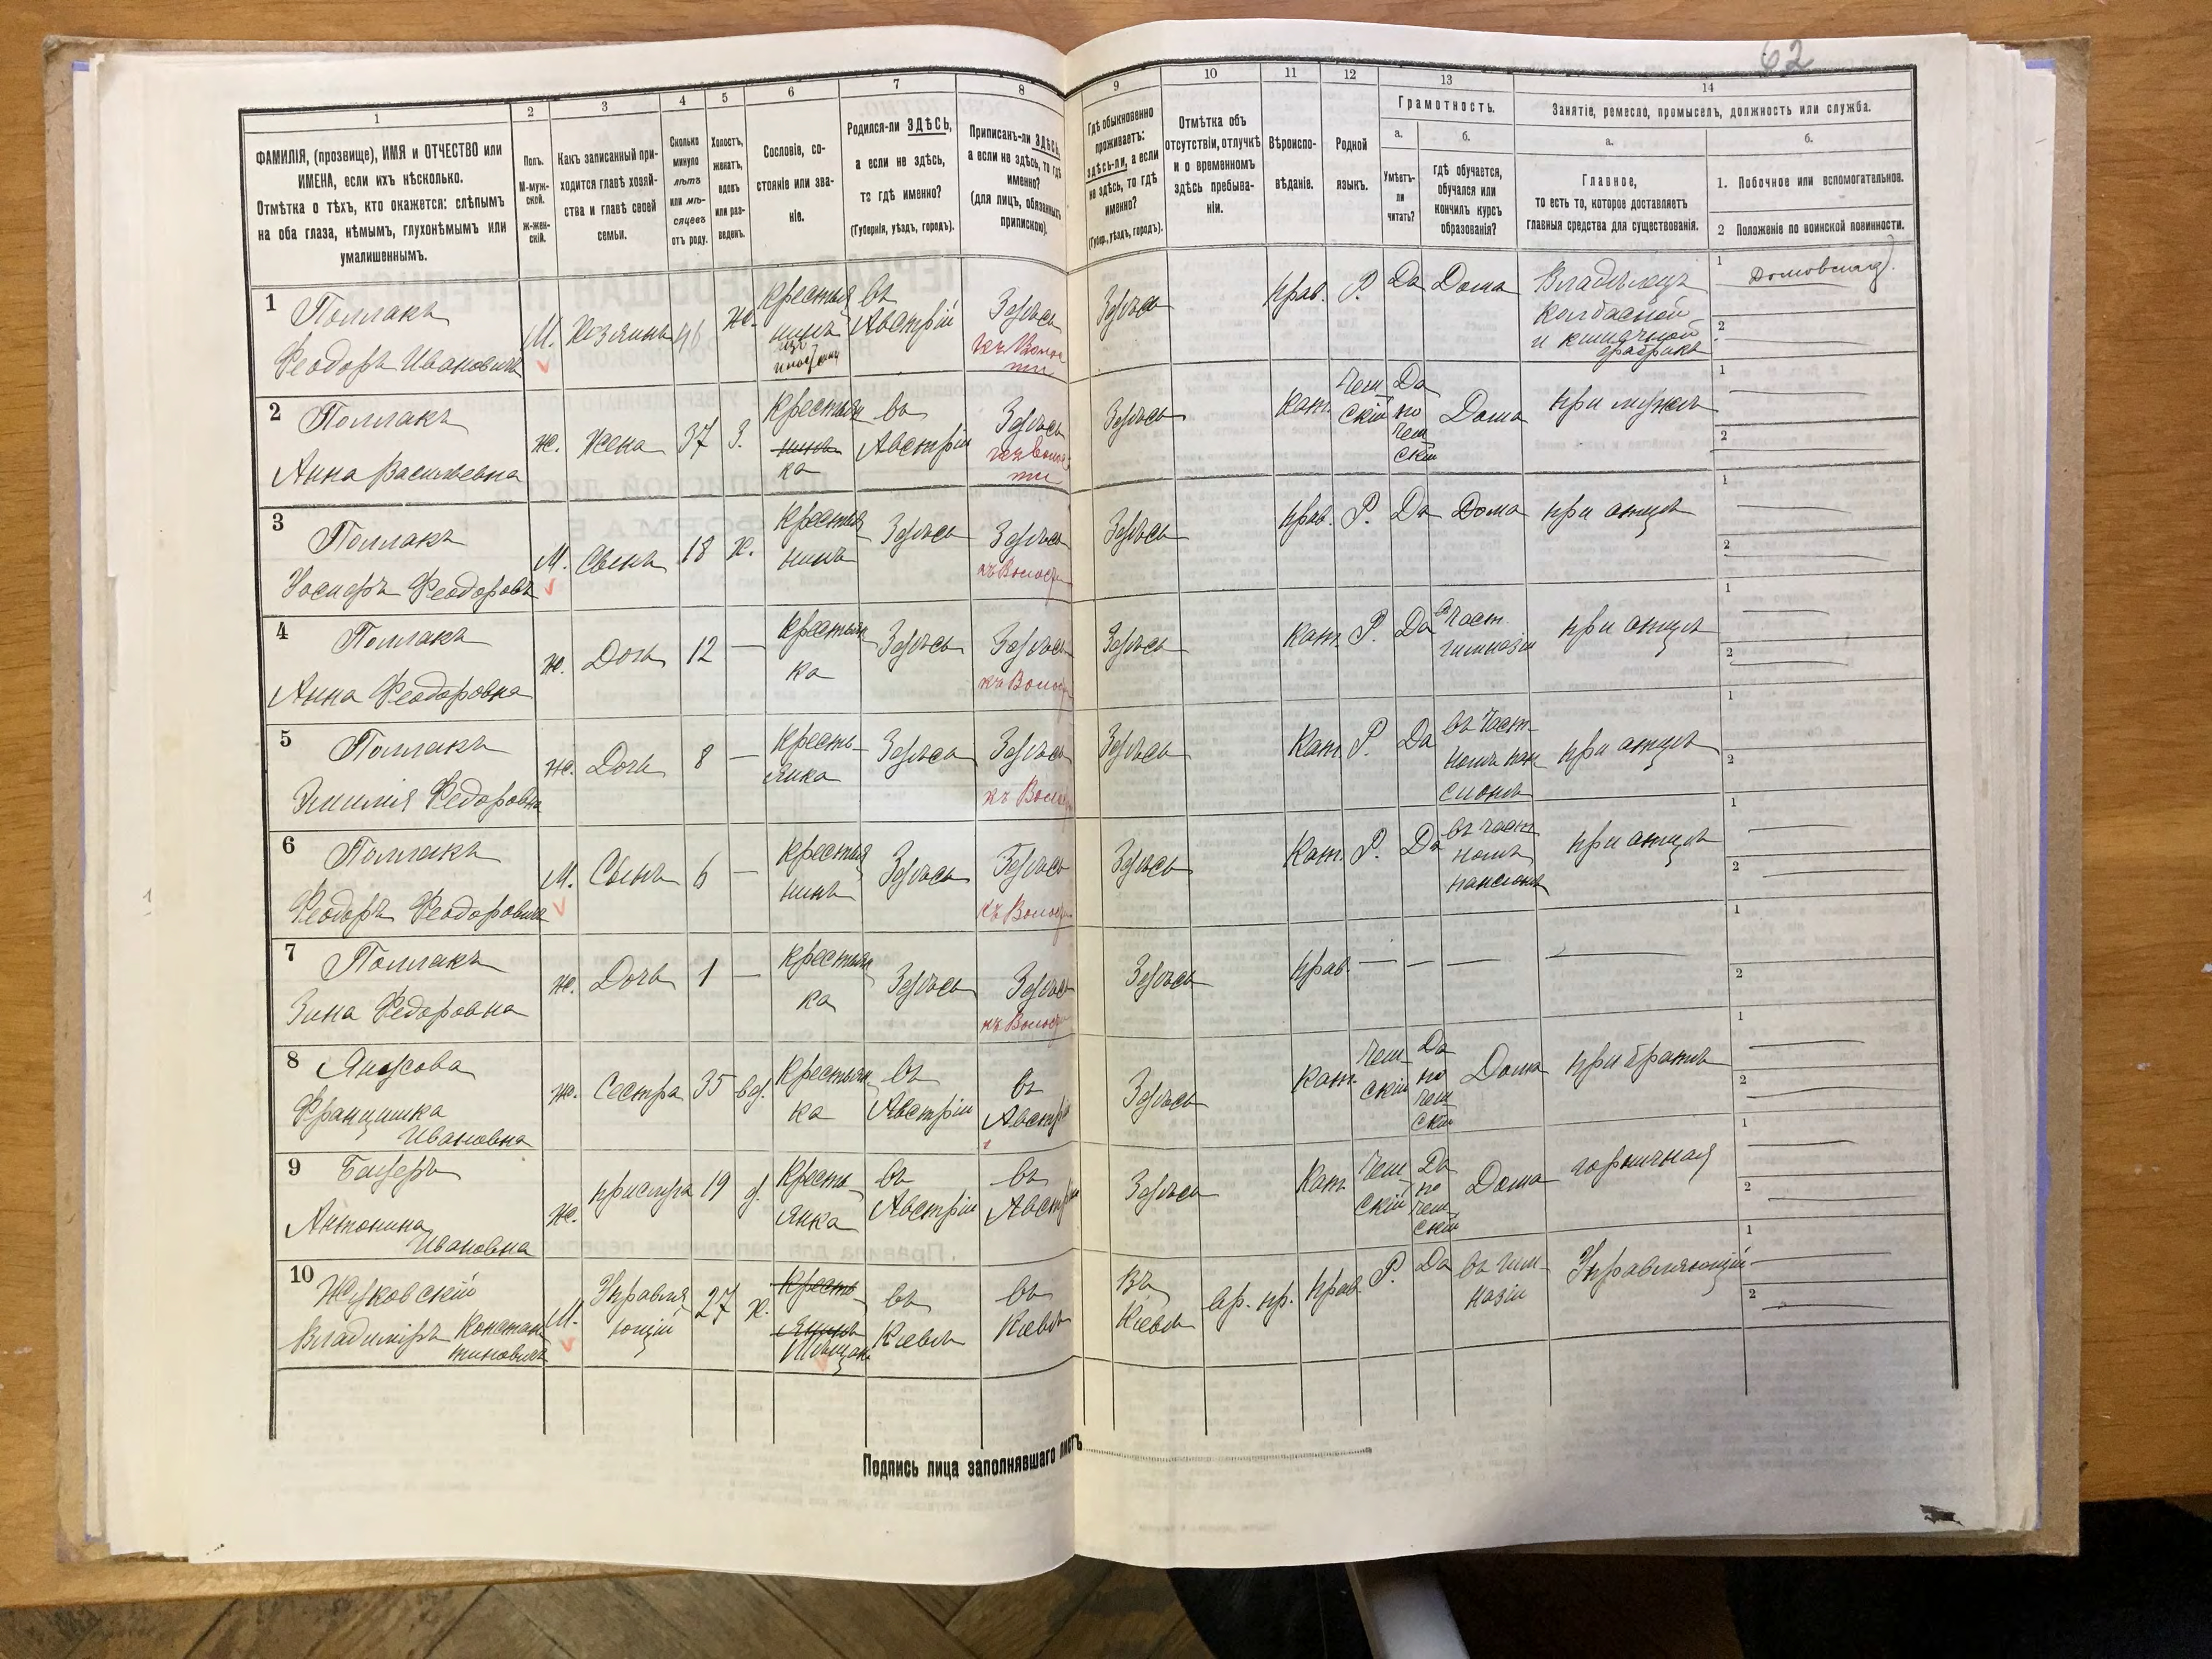 62
1
2
3
4
5
6
7
8
9
10
11
12
13
14
ФАМИЛІЯ, (прозвище), ИМЯ и ОТЧЕСТВО или
ИМЕНА, если ихъ нѣсколько.
Отмѣтка о тѣхъ, кто окажется: слѣпымъ
на оба глаза, нѣмымъ, глухонѣмымъ или
умалишеннымъ.
Полъ.
М-муж-
ской.
Ж-жен-
скій.
Какъ записанный при-
ходится главѣ хозяй-
ства и главѣ своей
семьи.
Сколько
минуло
лѣтъ
или мѣ-
сяцевъ
отъ роду.
Холостъ,
женатъ,
вдовъ
или раз-
веденъ.
Сословіе, со-
стояніе или зва-
ніе.
Родился-ли ЗДѢСЬ,
а если не здѣсь,
то гдѣ именно?
(Губернія, уѣздъ, городъ).
Приписанъ-ли ЗДѢСЬ,
а если не здѣсь, то гдѣ
именно?
(для лицъ, обязанныхъ
припискою).
Гдѣ обыкновенно
проживаетъ:
здѣсь-ли, а если
не здѣсь, то гдѣ
именно?
(Губер., уѣздъ, городъ).
Отмѣтка объ
отсутствіи, отлучкѣ
и о временномъ
здѣсь пребыва-
ніи.
Вѣроиспо-
вѣданіе.
Родной
языкъ.
Грамотность.
а.
Умѣетъ-
ли
читать?
б.
гдѣ обучается,
обучался или
кончилъ курсъ
образованія?
Занятіе, ремесло, промыселъ, должность или служба.
а.
Главное,
то есть то, которое доставляетъ
главныя средства для существованія.
б.
1. Побочное или вспомогательное.
2 Положеніе по воинской повинности.
1
Поллакъ
Феодоръ Ивановичъ
М.
Хозяинъ
46
ж.
Крестья
нинъ
въ
Австріи
Здѣсь
Здѣсь
Прав.
Р.
Да
Дома
Владѣлецъ
Колбасной
и кишечной
фабрики
1
2
2
Поллакъ
Анна Васильевна
ж.
Жена
37
З.
Крестьян
ка
въ
Австріи
Здѣсь
Здѣсь
Кат.
Чеш
скій
Да
по
Чеш
скій
Дома
При мужѣ
1
2
3
Поллакъ
Іосифъ Феодоровъ
М.
Сынъ
18
х.
Крестья
нинъ
Здѣсь
Здѣсь
къ Волост
Здѣсь
Прав.
Р.
Да
Дома
При отцѣ
1
2
4
Поллакъ
Анна Феодоровна
ж.
Дочь
12
—
Крестьян
ка
Здѣсь
Здѣсь
къ Волост
Здѣсь
Кат.
Р.
Да
въ Част.
гимназіи
При отцѣ
1
2
5
Поллакъ
Эмилія Федоровна
ж.
Дочь
8
—
Кресть-
янка
Здѣсь
Здѣсь
къ Волос
Здѣсь
Кат.
Р.
Да
въ Част-
номъ пан
сіонѣ
При отцѣ
1
2
6
Поллакъ
Феодоръ Феодоровичъ
М.
Сынъ
6
—
Крестья
нинъ
Здѣсь
Здѣсь
къ Волост
Здѣсь
Кат.
Р.
Да
въ част
номъ
пансіонѣ
При отцѣ
1
2
7
Поллакъ
Зина Федоровна
ж.
Дочь
1
—
Крестьян
ка
Здѣсь
Здѣсь
къ Волост
Здѣсь
Прав.
—
—
—
—
1
2
8
Францишка
Ивановна
ж.
Сестра
35
вд.
Крестьян
ка
въ
Австріи
въ
Австрі
Здѣсь
Кат.
Чеш
скій
Да
по
Чеш
скій
Дома
При братѣ
1
2
9
Антонина
Ивановна
ж.
Прислуга
19
д.
Кресть-
янка
въ
Австріи
въ
Австріи
Здѣсь
Кат.
Чеш
скій
Да
по
Чеш
скій
Дома
горничная
1
2
10
Жуковскій
Владиміръ Констан
тиновичъ
М.
Управля
ющій
27
х.
Кресть
янинъ
Мѣщан
въ
Кіевѣ
въ
Кіевѣ
Въ
Кіевѣ
Вр. пр.
Прав.
Р.
Да
въ гим-
назіи
Управляющій
1
2
Подпись лица заполнявшаго листъ